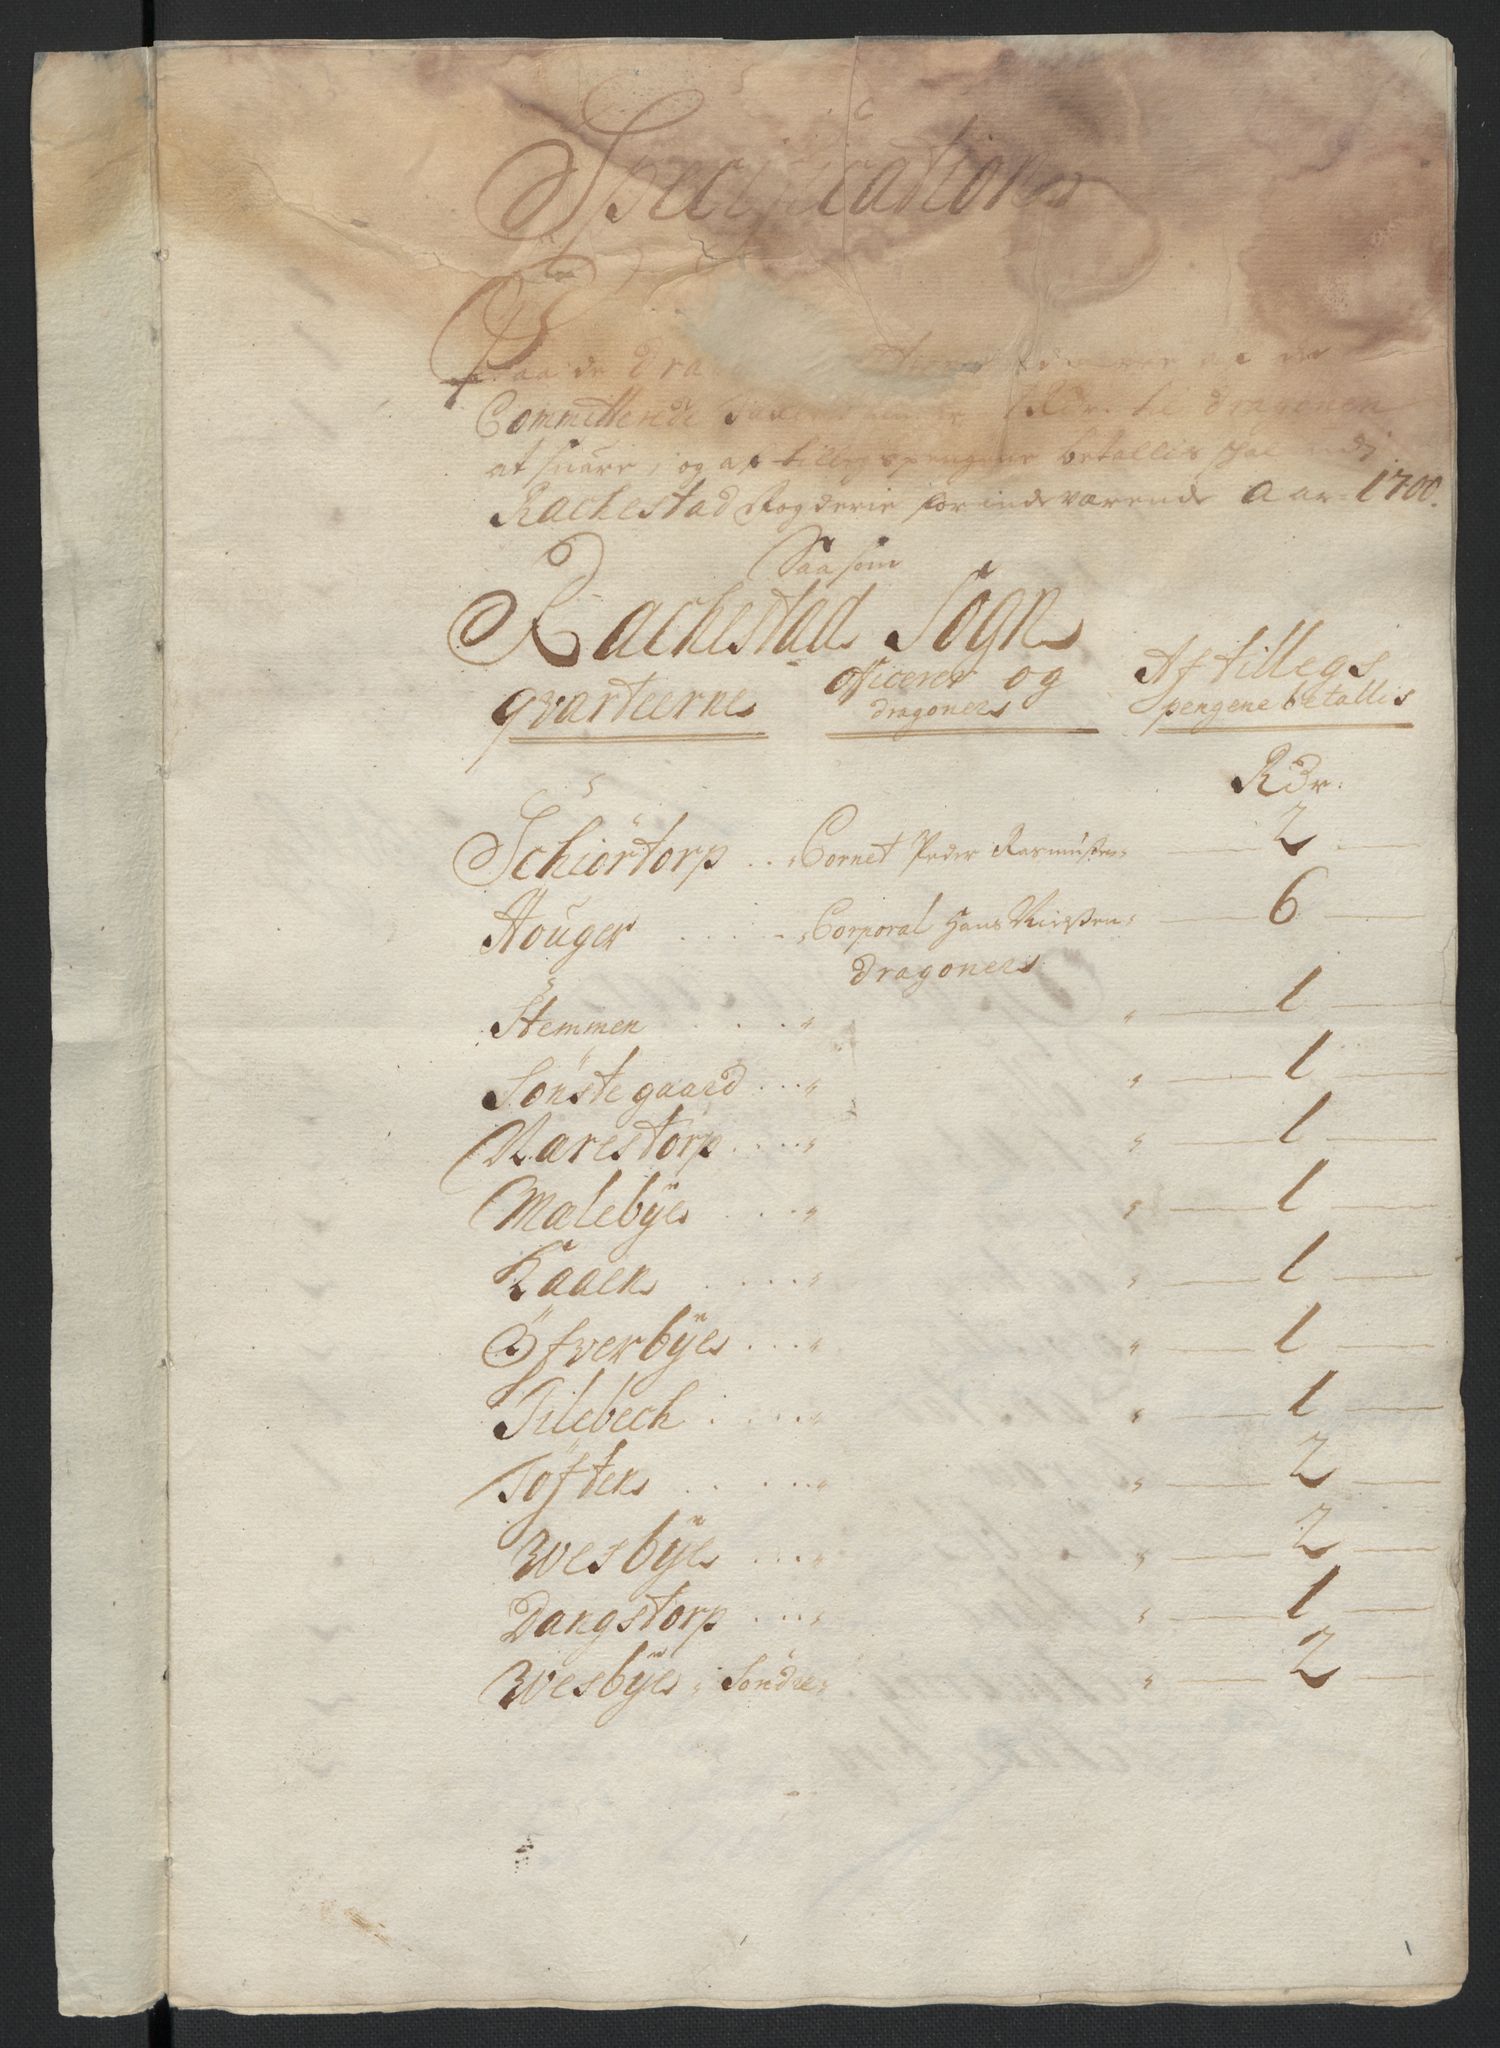 Specification
Paa de
Committerede 1 Rdr. til dragonen
at suare, og af tillegspengene betallis skal udj
Rachestad Fogderie for indeværende Aar= 1700.
Saasom
Rachestad Sogn
qvarteerne
officerer og dragoners
Af tillegs pengene betallis
Rdr:
Schiörtorp Cornet Peder Rasmusen 2
Houger Corporal Hans Nielsen 6
dragoners
Stemmen " " 1
Sönstegaard " " 1
Narestorp " " 1
Malebye " " 1
Kaaen " " 1
Öfverbye " " 1
Tilebech " " 1
Töften " " 2
Wesbye " " 2
Dangstorp " " 1
Wesbye Söndre " 2